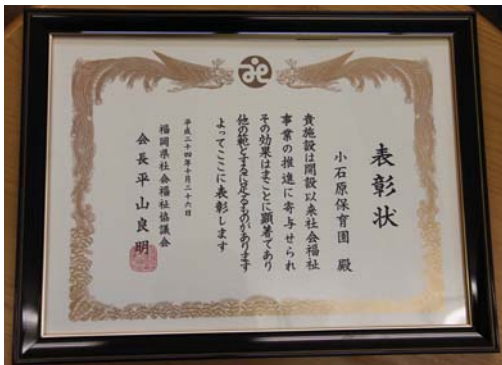 表彰状
小石原保育園 殿
貴施設は開設以来社会福祉
事業の推進に寄与せられ
その効果はまことに顕著であり
他の範とするに足るものがあります
よってここに表彰します
平成二十四年十月二十六日
福岡県社会福祉協議会
会長 平山良明